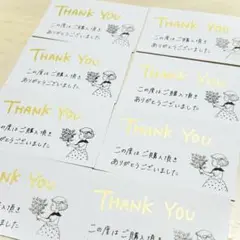 THANK YOU
この度はご購入頂き
ありがとうございました
THANK YOU
この度はご購入頂き
ありがとうございました
THANK YOU
この度はご購入頂き
ありがとうございました
THANK YOU
この度はご購入頂き
ありがとうございました
THANK YOU
この度はご購入頂き
ありがとうございました
THANK YOU
この度はご購入頂き
ありがとうございました
YOU
購入頂き
ました
THANK YOU
この度はご購入頂き